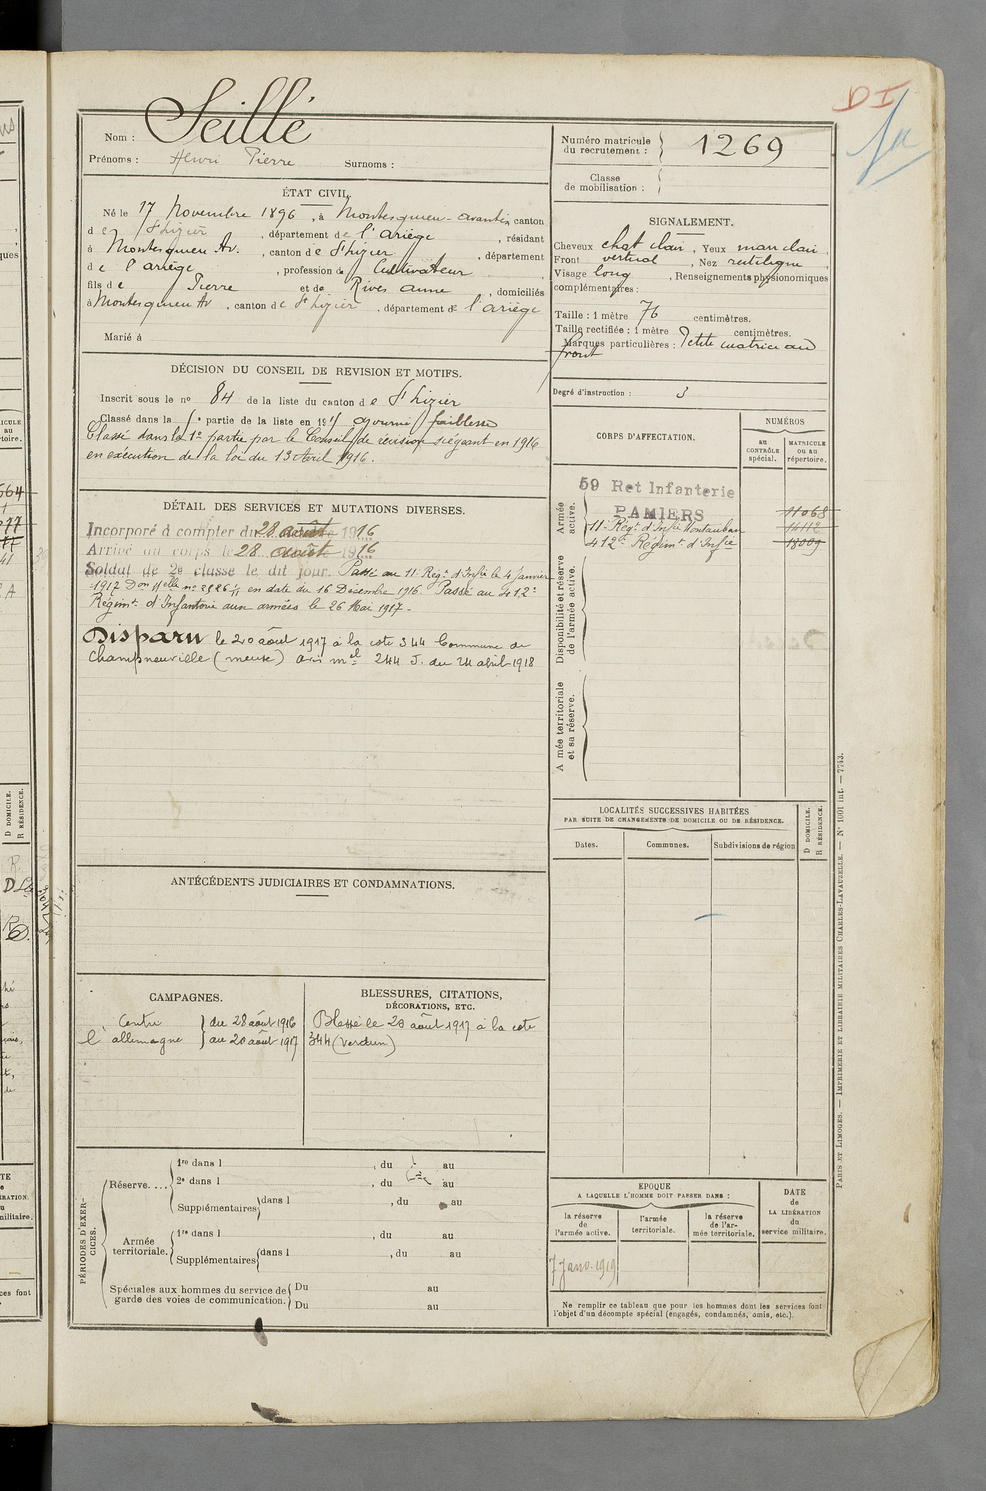 Seillé
Nom :
Prénoms : Henri Pierre Surnoms :
ÉTAT CIVIL.
Né le 17 Novembre 1896, à Montesquieu-avantès, canton
de St Lizier, département de l'Ariège, résidant
à Montesquieu Av., canton de St Lizier, département
de l'ariège, profession de Cultivateur
fils de Pierre et de Rives anne, domiciliés
à Montesquieu Av, canton de St Lizier, département de l'ariège
Marié à
DÉCISION DU CONSEIL DE REVISION ET MOTIFS.
Inscrit sous le no 84 de la liste du canton de St Lizier
Classé dans la partie de la liste en 191 ajourné faiblesse
Classé dans la 1e partie par le Conseil de révision siégeant en 1916
en exécution de la loi du 13 Avril 1916.
DÉTAIL DES SERVICES ET MUTATIONS DIVERSES.
Incorporé à compter du 28 août 1916
Arrivé au corps le 28 août 1916
Soldat de 2e classe le dit jour. Passé au 11 Regt d'Infie le 4 Janvier
1917 Don elle no en date du 16 Décembre 1916. Passé au 412e
Régimt d'Infanterie aux armées le 26 Mai 1917.
Disparu le 20 août 1917 à la cote 344 Commune de
Champneuville (meuse) avis mel 244 J. du 24 abril 1918
ANTÉCÉDENTS JUDICIAIRES ET CONDAMNATIONS.
CAMPAGNES.
Contre } du 28 août 1916
l'allemagne } au 20 août 1917
BLESSURES, CITATIONS,
DÉCORATIONS, ETC.
Blessé le 20 août 1917 à la cote
344 (verdun)
PÉRIODES D'EXERCICES.
Réserve....
1re dans l , du au
2e dans l , du au
Supplémentaires dans l , du au
Armée
territoriale.
1re dans l , du au
Supplémentaires dans l , du au
Spéciales aux hommes du service de
garde des voies de communication.
Du au
Du au
DI
Numéro matricule
du recrutement : 1269
Classe
de mobilisation :
SIGNALEMENT.
Cheveux chat clair, Yeux mar clair
Front vertical, Nez rectiligne
Visage long, Renseignements physionomiques
complémentaires :
Taille : 1 mètre 76 centimètres.
Taille rectifiée : 1 mètre centimètres.
Marques particulières : Petite cicatrice au
front
Degré d'instruction : 3
CORPS D'AFFECTATION.
NUMÉROS
au
CONTRÔLE
spécial.
MATRICULE
ou au
répertoire.
Armée
active.
59 Ret Infanterie
PAMIERS 11068
11e Régt d'Infie Montauban 14112
412e Régimt d'Infie 18009
Disponibilité et réserve
de l'armée active.
A mée territoriale
et sa réserve.
LOCALITÉS SUCCESSIVES HABITÉES
PAR SUITE DE CHANGEMENTS DE DOMICILE OU DE RÉSIDENCE.
Dates. Communes. Subdivisions de région
D DOMICILE.
R RÉSIDENCE.
EPOQUE
A LAQUELLE L'HOMME DOIT PASSER DANS :
la réserve
de
l'armée active.
l'armée
territoriale.
la réserve
de l'ar-
mée territoriale.
DATE
de
LA LIBÉRATION
du
service militaire.
7 Janv. 1919
Ne remplir ce tableau que pour les hommes dont les services font
l'objet d'un décompte spécial (engagés, condamnés, omis, etc.).
PARIS ET LIMOGES. — IMPRIMERIE ET LIBRAIRIE MILITAIRES CHARLES-LAVAUZELLE. — No 1001 int. — 7743.